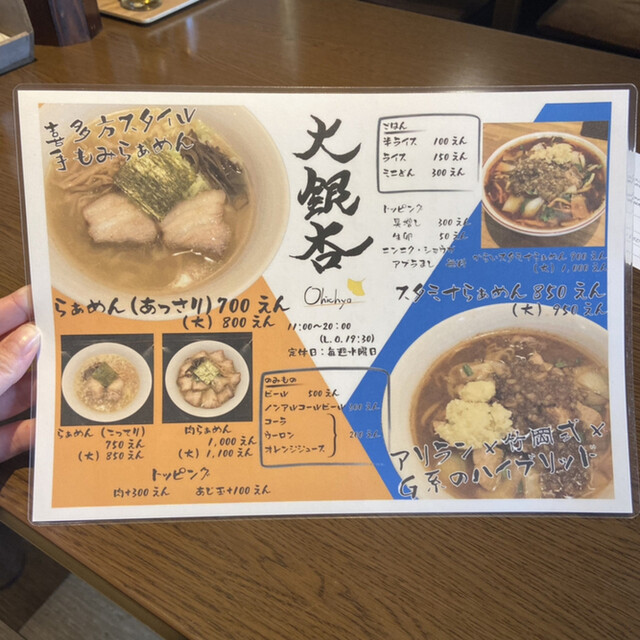 喜多方スタイル
手もみらぁめん
大銀杏
Ohichyo
らぁめん(あっさり)700えん
(大)800えん
11:00〜20:00
(L.O.19:30)
定休日:毎週水曜日
らぁめん(こってり)
750えん
(大)850えん
肉らぁめん
1,000えん
(大)1,100えん
トッピング
肉+300えん あじ玉+100えん
のみもの
ビール 500えん
ノンアルコールビール
コーラ
ウーロン
オレンジジュース
200えん
ごはん
半ライス 100えん
ライス 150えん
ミニどん 300えん
トッピング
300えん
生卵 50えん
ニンニク・ショウガ
アブラまし 無料
(大)1,000えん
スタミナらぁめん 850えん
(大)950えん
アリラン×竹岡式×
G系のハイブリッド